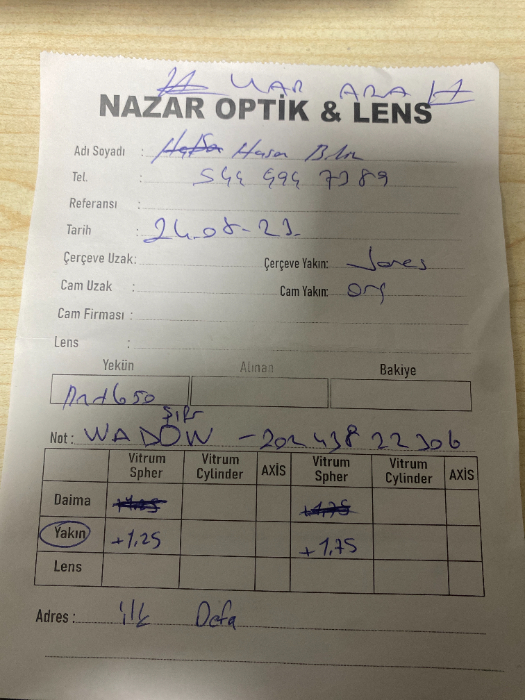 VAR ARA
NAZAR OPTİK & LENS
Adı Soyadı : Hasan
Tel. : 544 494 7389
Referansı :
Tarih : 24.08-23.
Çerçeve Uzak: Çerçeve Yakın:
Cam Uzak : Cam Yakın: org
Cam Firması :
Lens :
Yekün Alınan Bakiye
650
Not : WADOW - 202 438 22306
Vitrum Spher Vitrum Cylinder AXİS Vitrum Spher Vitrum Cylinder AXİS
Daima
Yakın +1,25 +1,75
Lens
Adres : ilk Defa